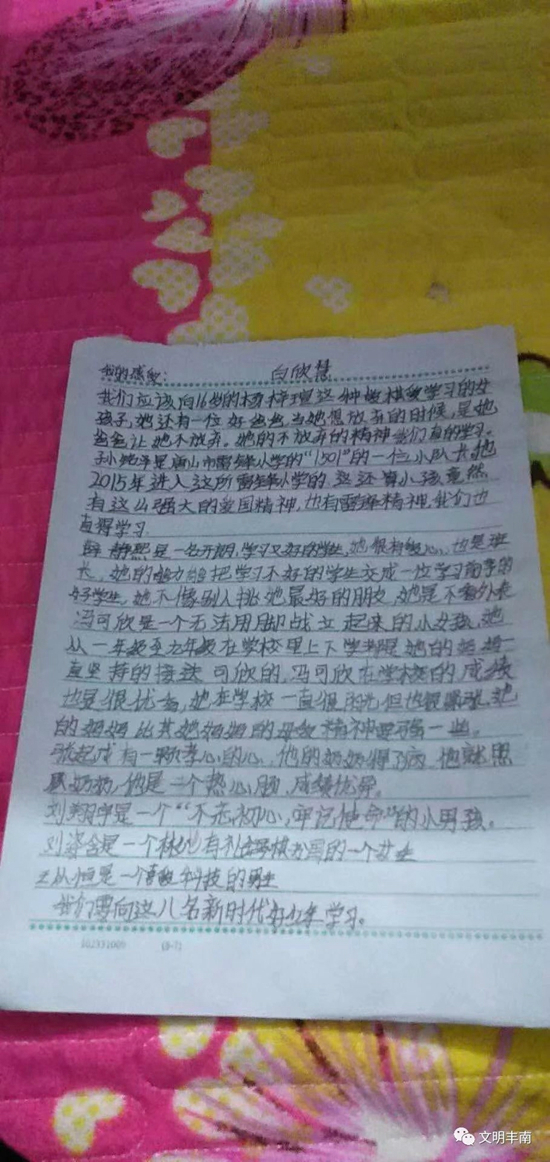 我的感受： 白欣慧
我们应该向16岁的杨梓理这种 学习的女
孩子，她还有一位好爸爸，当她想放弃的时候，是她
爸爸让她不放弃。她的不放弃的精神我们真的学习。
孙 是唐山市雷锋小学的“1501”的一位小队长，她
2015年进入这所雷锋小学的 这还算小孩竟然
有这么强大的爱国精神，也有雷锋精神，我们也
直得学习
静熙是一名开朗，学习又好的学生，她很有 心，也是班
长，她的能力能把学习不好的学生变成一位学习 的
好学生，她不像别人挑她最好的朋友，她是不看外表
冯可欣是一个无法用脚战立起来的小女孩，她
从一年级至九年级在学校里上下学都是她的 一
直坚持的接送可欣的，冯可欣在学校的成绩
也是很优秀，她在学校一直很 但也很 ，她
的妈妈比其她妈妈的母爱精神要强一些。
张起成有一颗孝心的心，他的奶奶得了病，他就照
顾奶奶，他是一个热心肠，成绩优异。
刘翔宇是一个“不忘初心，牢记使命”的小男孩。
刘 含是一个 有礼 的一个女生
王从恒是一个 科技的男生
我们要向这八名新时代好少年学习。
102331009 (8-7)
文明丰南